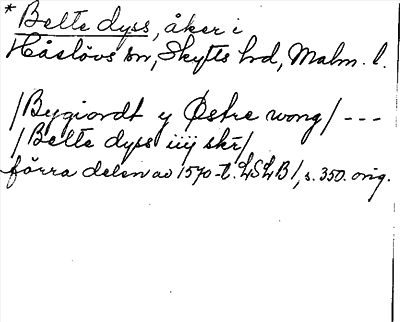 * Belte dyss, åker i
Håslövs sn, Skytts hd, Malm. l.
/Bygiordt y Østre wong/ ---
/Belte dyss iiij skr/
förra delen av 1570-t. LSLB 1, s. 350. orig.